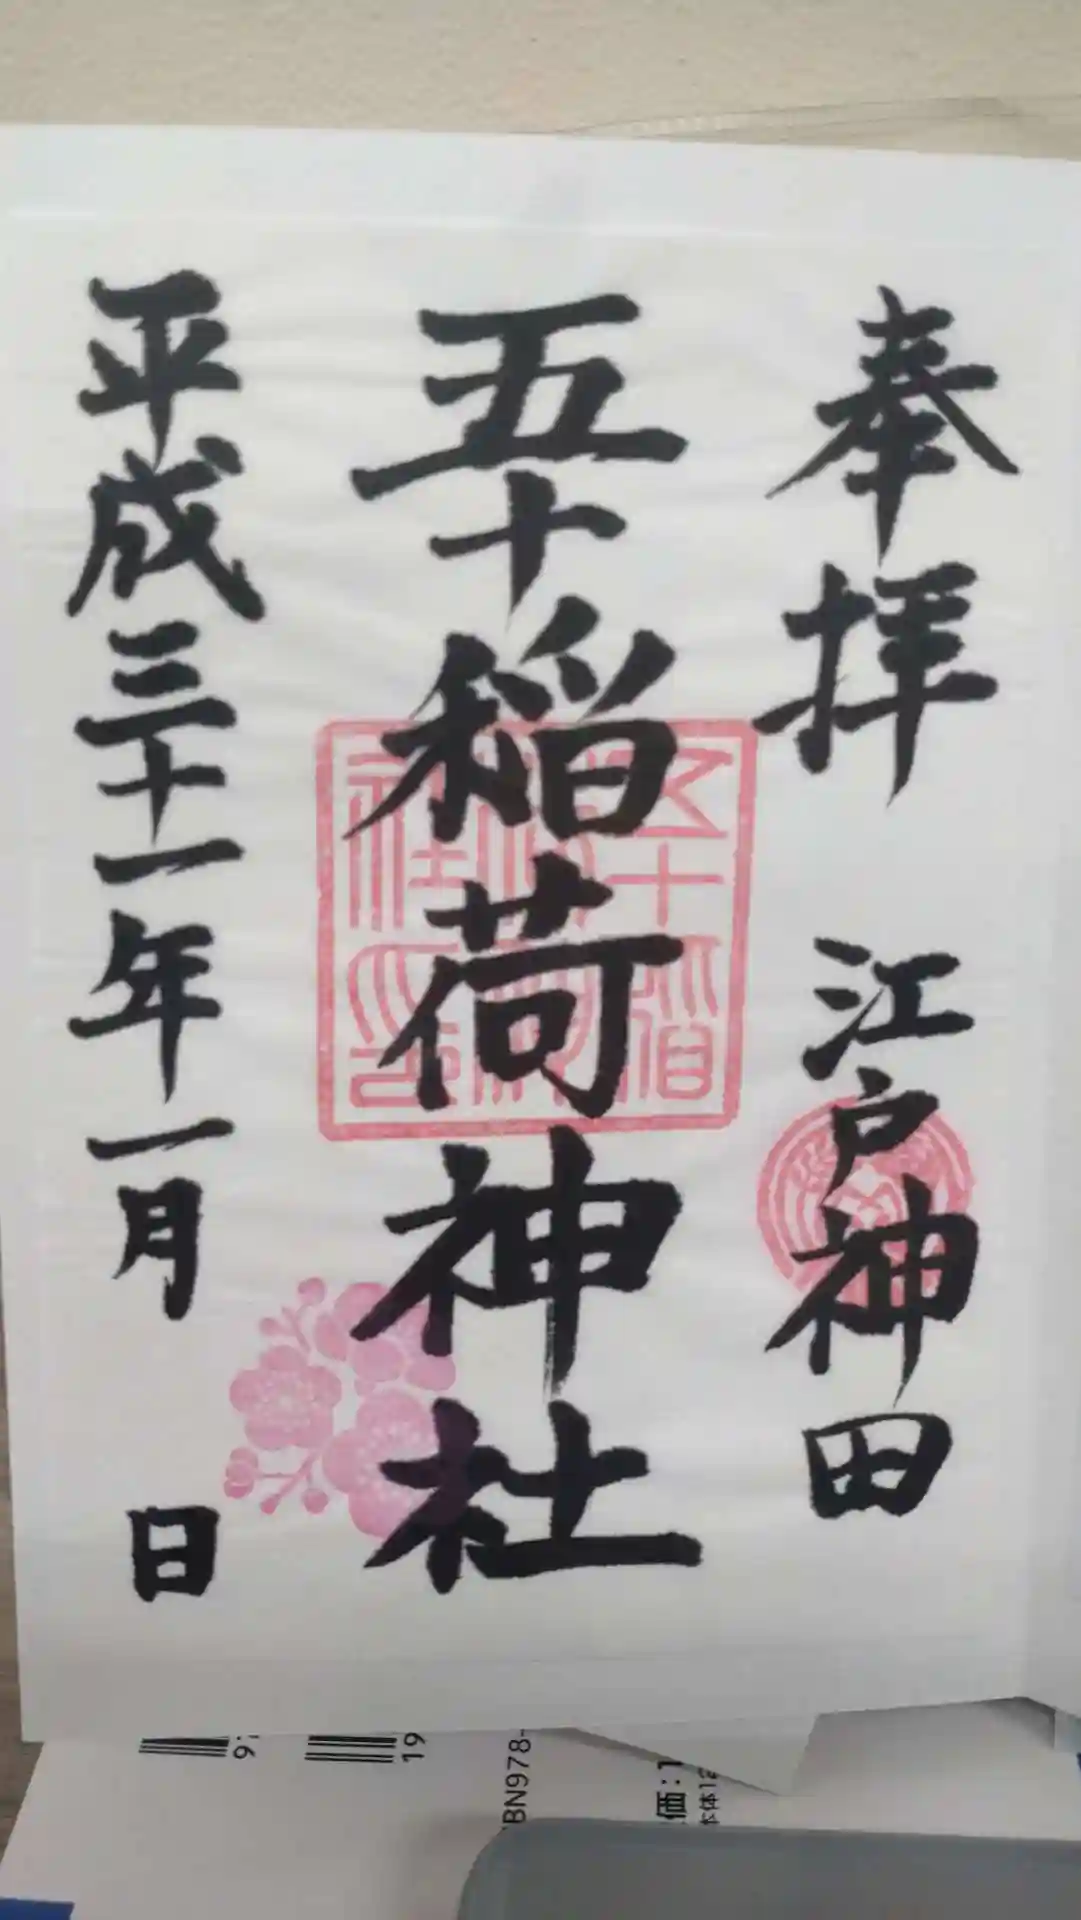 奉拝 江戸神田
五十稲荷神社
平成三十一年一月 日
五十稲
社
印
97
19
BN978-
価:1
本体12